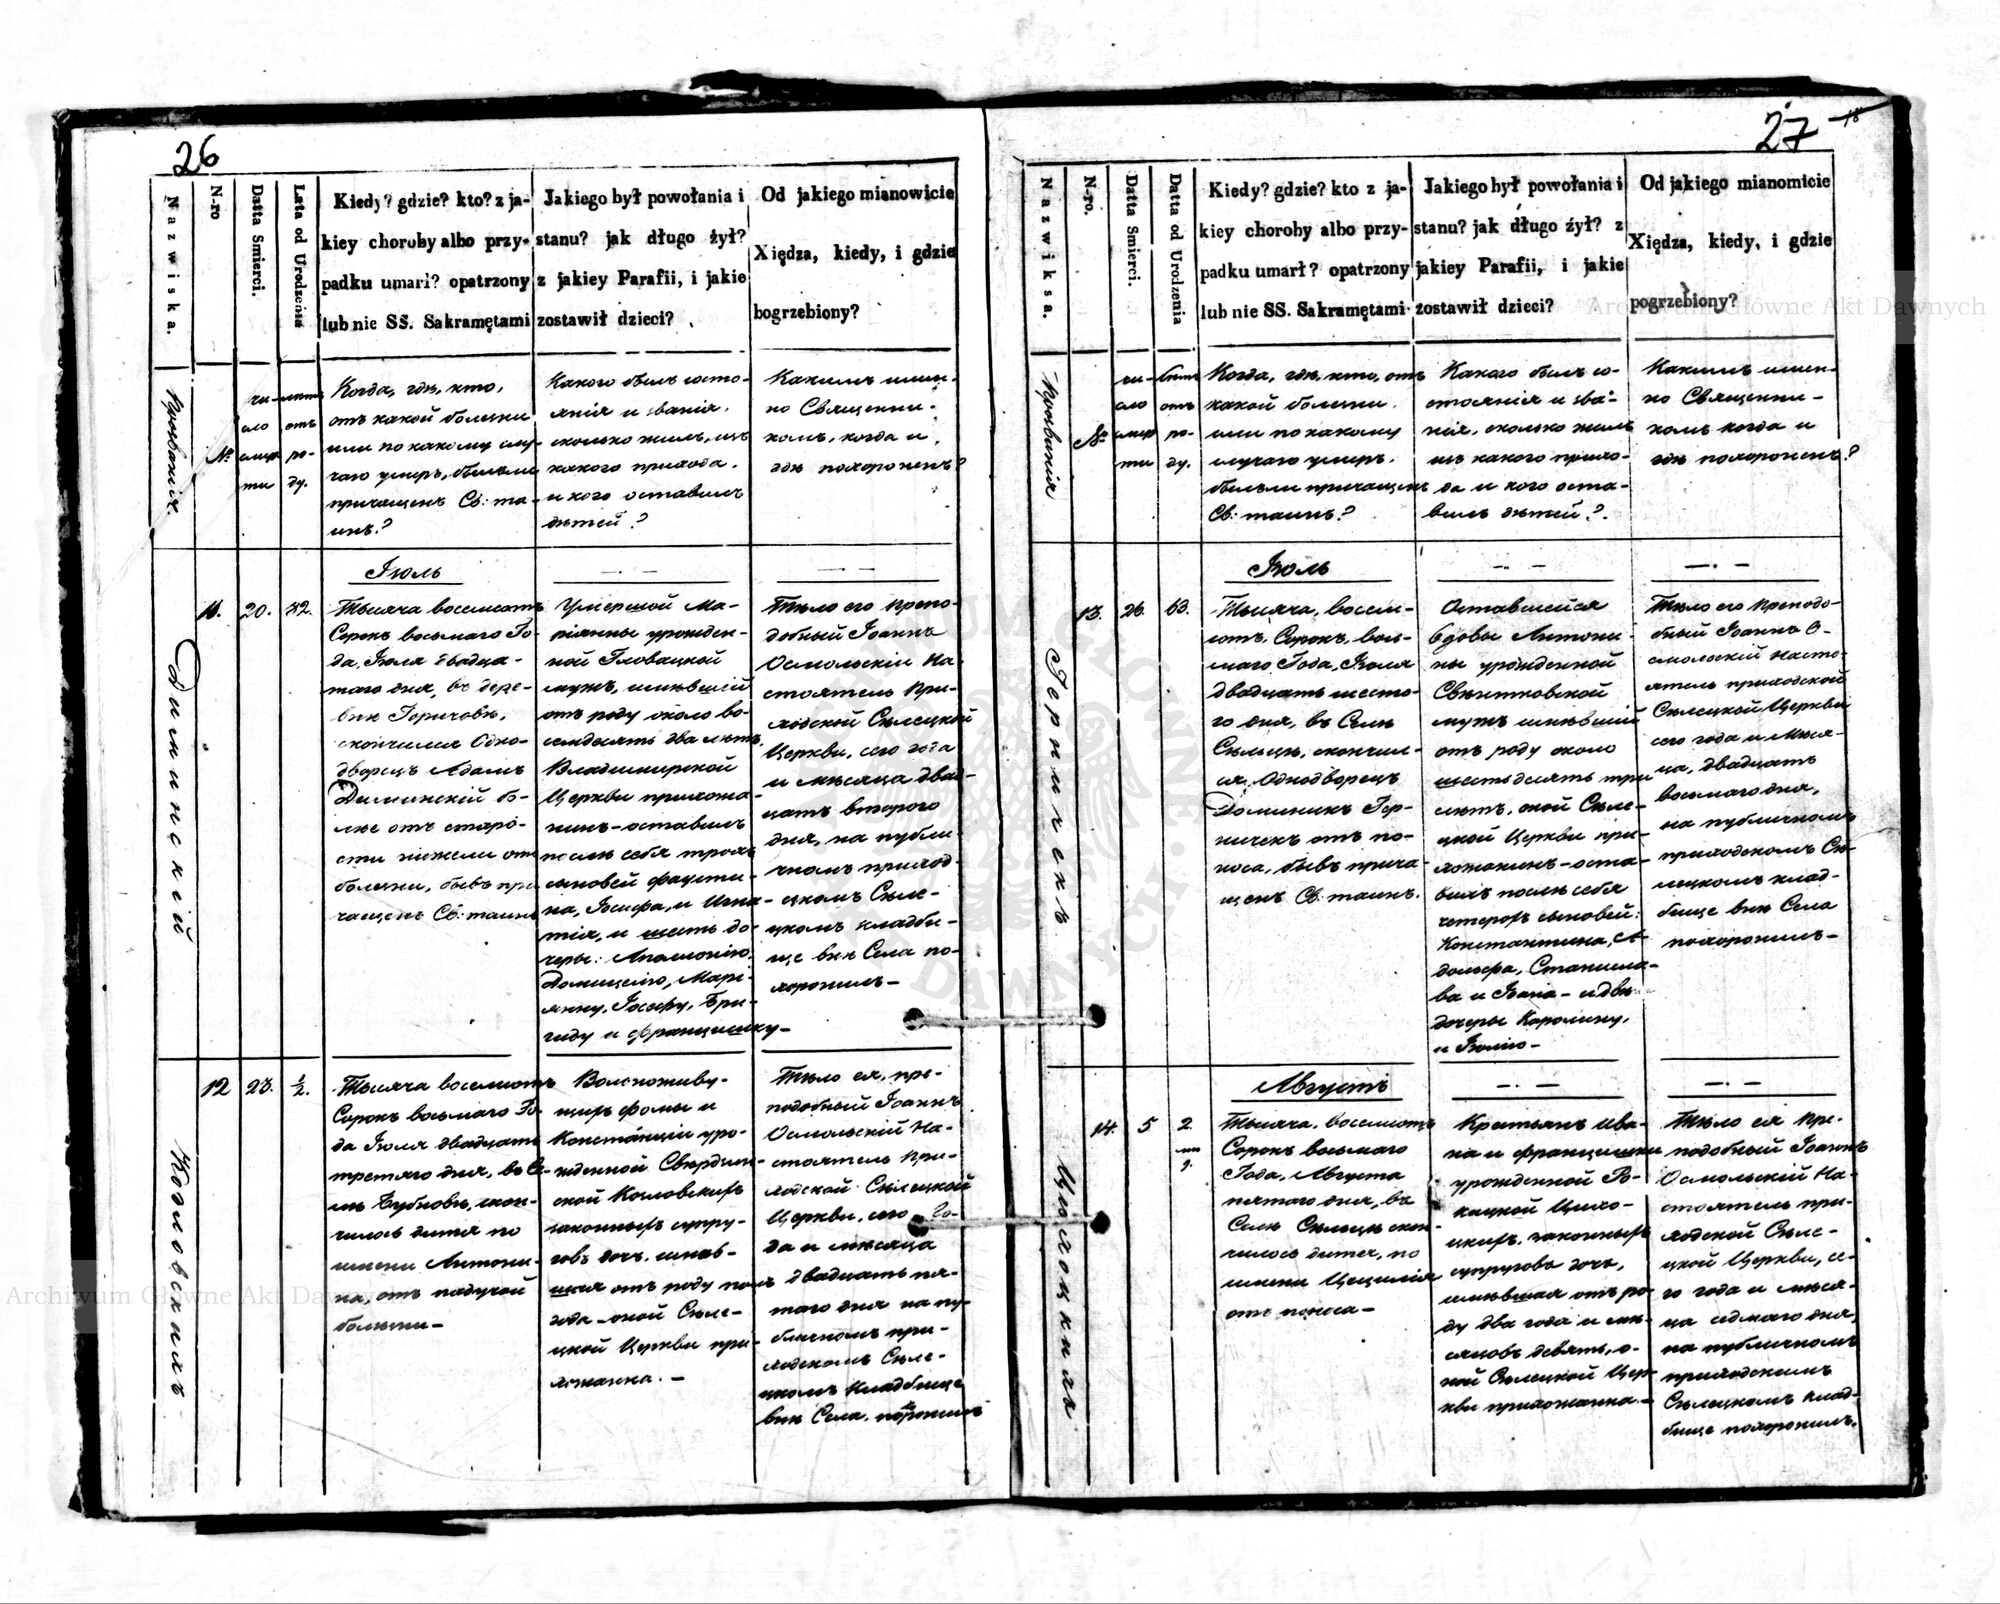 26
Nazwiska.
N-ro
Datta Smierci.
Lata od Urodzenia
Kiedy? gdzie? kto? z ja-
kiey choroby albo przy-
padku umarł? opatrzony
lub nie SS. Sakramętami
Jakiego był powołania i
stanu? jak długo żył?
z jakiey Parafii, i jakie
zostawił dzieci?
Od jakiego mianowicie
Xiędza, kiedy, i gdzie
bogrzebiony?
Прозванія.
№
чи-
сло
смер
ти
лѣтъ
отъ
ро-
ду.
Когда, гдѣ, кто,
отъ какой болезни
или по какому слу-
чаю умеръ, былъли
причащенъ Св: та-
инъ?
Какого былъ состо-
янія и званія,
сколько жилъ, изъ
какого прихода,
и кого оставилъ
дѣтей?
Какимъ имен-
но Священни-
комъ, когда и
гдѣ похороненъ?
Іюль
Диминскій
11.
20.
82.
Тысяча восемсотъ
Сорокъ восьмаго Го-
да, Іюля двадца-
таго дня, въ дере-
внѣ Горичовѣ,
скончился Одно-
дворецъ Адамъ
Диминскій бо-
лѣе отъ старо-
сти нежели отъ
болезни, бывъ при
чащенъ Св: таинъ
Умершой Ма-
ріянны урожден-
ной Гловацкой
мужъ, имѣвшій
отъ роду около во-
семдесятъ два лѣтъ,
Владимирской
Церкви прихожа-
нинъ – оставилъ
послѣ себя трохъ
сыновей Фаусти-
на, Іосифа, и Игна-
тія, и шесть до-
черы: Аполлонію,
Домицелю, Марі-
янну, Іосифу, Бри-
гиду и Францишку –
Тѣло его Препо-
добный Іоаннъ
Осмольскій На-
стоятель При-
ходской Сѣлецкой
Церкви, сего года
и мѣсяца двад-
цать второго
дня, на публи-
чномъ приход-
скомъ Сѣле-
цкомъ кладби-
ще внѣ Села по-
хоронилъ –
Козловскихъ
12
23.
½.
Тысяча восемсотъ
Сорокъ восьмаго Го-
да Іюля двадцать
третяго дня, въ Се-
лѣ Бубновѣ, скон-
чилось дитя по
имени Антони-
на, отъ падучой
болезни –
Вольноживу-
щихъ Фомы и
Констанціи уро-
жденной Свидзин-
ской Козловскихъ
законныхъ супру-
говъ дочь, имѣв-
шая отъ роду полъ
года – оной Сѣле-
цкой Церкви при-
хожанка. –
Тѣло ея, пре-
подобный Іоаннъ
Осмольскій На-
стоятель При-
ходской Сѣлецкой
Церкви, сего Го-
да и мѣсяца
двадцать пя-
таго дня на пу-
бличномъ при-
ходскомъ Сѣле-
цкомъ кладбище
внѣ Села, похоронилъ
27
18
Nazwiksa.
N-ro.
Datta Smierci.
Datta od Urodzenia
Kiedy? gdzie? kto z ja-
kiey choroby albo przy-
padku umarł? opatrzony
lub nie SS. Sakramętami
Jakiego był powołania i
stanu? jak długo żył? z
jakiey Parafii, i jakie
zostawił dzieci?
Od jakiego mianomicie
Xiędza, kiedy, i gdzie
pogrzebiony?
Прозванія
№
чи-
сло
смер
ти
лѣтъ
отъ
ро-
ду.
Когда, гдѣ, кто, отъ
какой болезни,
или по какому
случаю умеръ,
былъли причащенъ
Св: таинъ?
Какого былъ со-
стоянія и зва-
нія, сколько жилъ
изъ какого прихо-
да и кого оста-
вилъ дѣтей?
Какимъ имен-
но Священни-
комъ когда и
гдѣ похороненъ?
Іюль
Герничекъ
13.
26.
63.
Тысяча, восем-
сотъ, Сорокъ, вось-
маго Года, Іюля
двадцать шесто-
го дня, въ Селѣ
Сѣльцѣ, скончил-
ся, Однодворецъ
Доминикъ Гер-
ничекъ отъ по-
носа, бывъ прича-
щенъ Св: таинъ.
Оставшейся
вдовы Антони-
ны урожденной
Свентковской
мужъ имѣвшій
отъ роду около
шестьдесятъ три
лѣтъ, оной Сѣле-
цкой Церкви при-
хожанинъ – оста-
вилъ послѣ себя
четерохъ сыновей:
Константина, А-
дольфа, Станисла-
ва и Ивана – и двѣ
дочеры Каролину,
и Юлію –
Тѣло его Преподо-
бный Іоаннъ О-
смольскій Насто-
ятель приходской
Сѣлецкой Церкви
сего года и Мѣся-
ца, двадцать
восьмаго дня,
на публичномъ
приходскомъ Сѣ-
лецкомъ клад-
бище внѣ Села
похоронилъ –
Августъ
Цихоцкихъ
14.
5
2.
9.
Тысяча, восемсотъ
Сорокъ восьмаго
Года, Августа
пятаго дня, въ
Селѣ Сѣльцѣ скон-
чилось дитя, по
имени Цецилія
отъ поноса –
Крестьянъ Ива-
на и Францишки
урожденной Ро-
кицкой Цихо-
цкихъ, законныхъ
супруговъ дочь,
имѣвшая отъ ро-
ду два года и мѣ-
сяцовъ девять, о-
ной Сѣлецкой Цер-
кви прихожанка –
Тѣло ея Пре-
подобный Іоаннъ
Осмольскій На-
стоятель при-
ходской Сѣле-
цкой Церкви, се-
го года и мѣся-
ца седмаго дня,
на публичномъ
приходскомъ
Сѣлецкомъ клад-
бище похоронилъ.
Archiwum Główne Akt Dawnych
Archiwum Główne Akt Dawnych